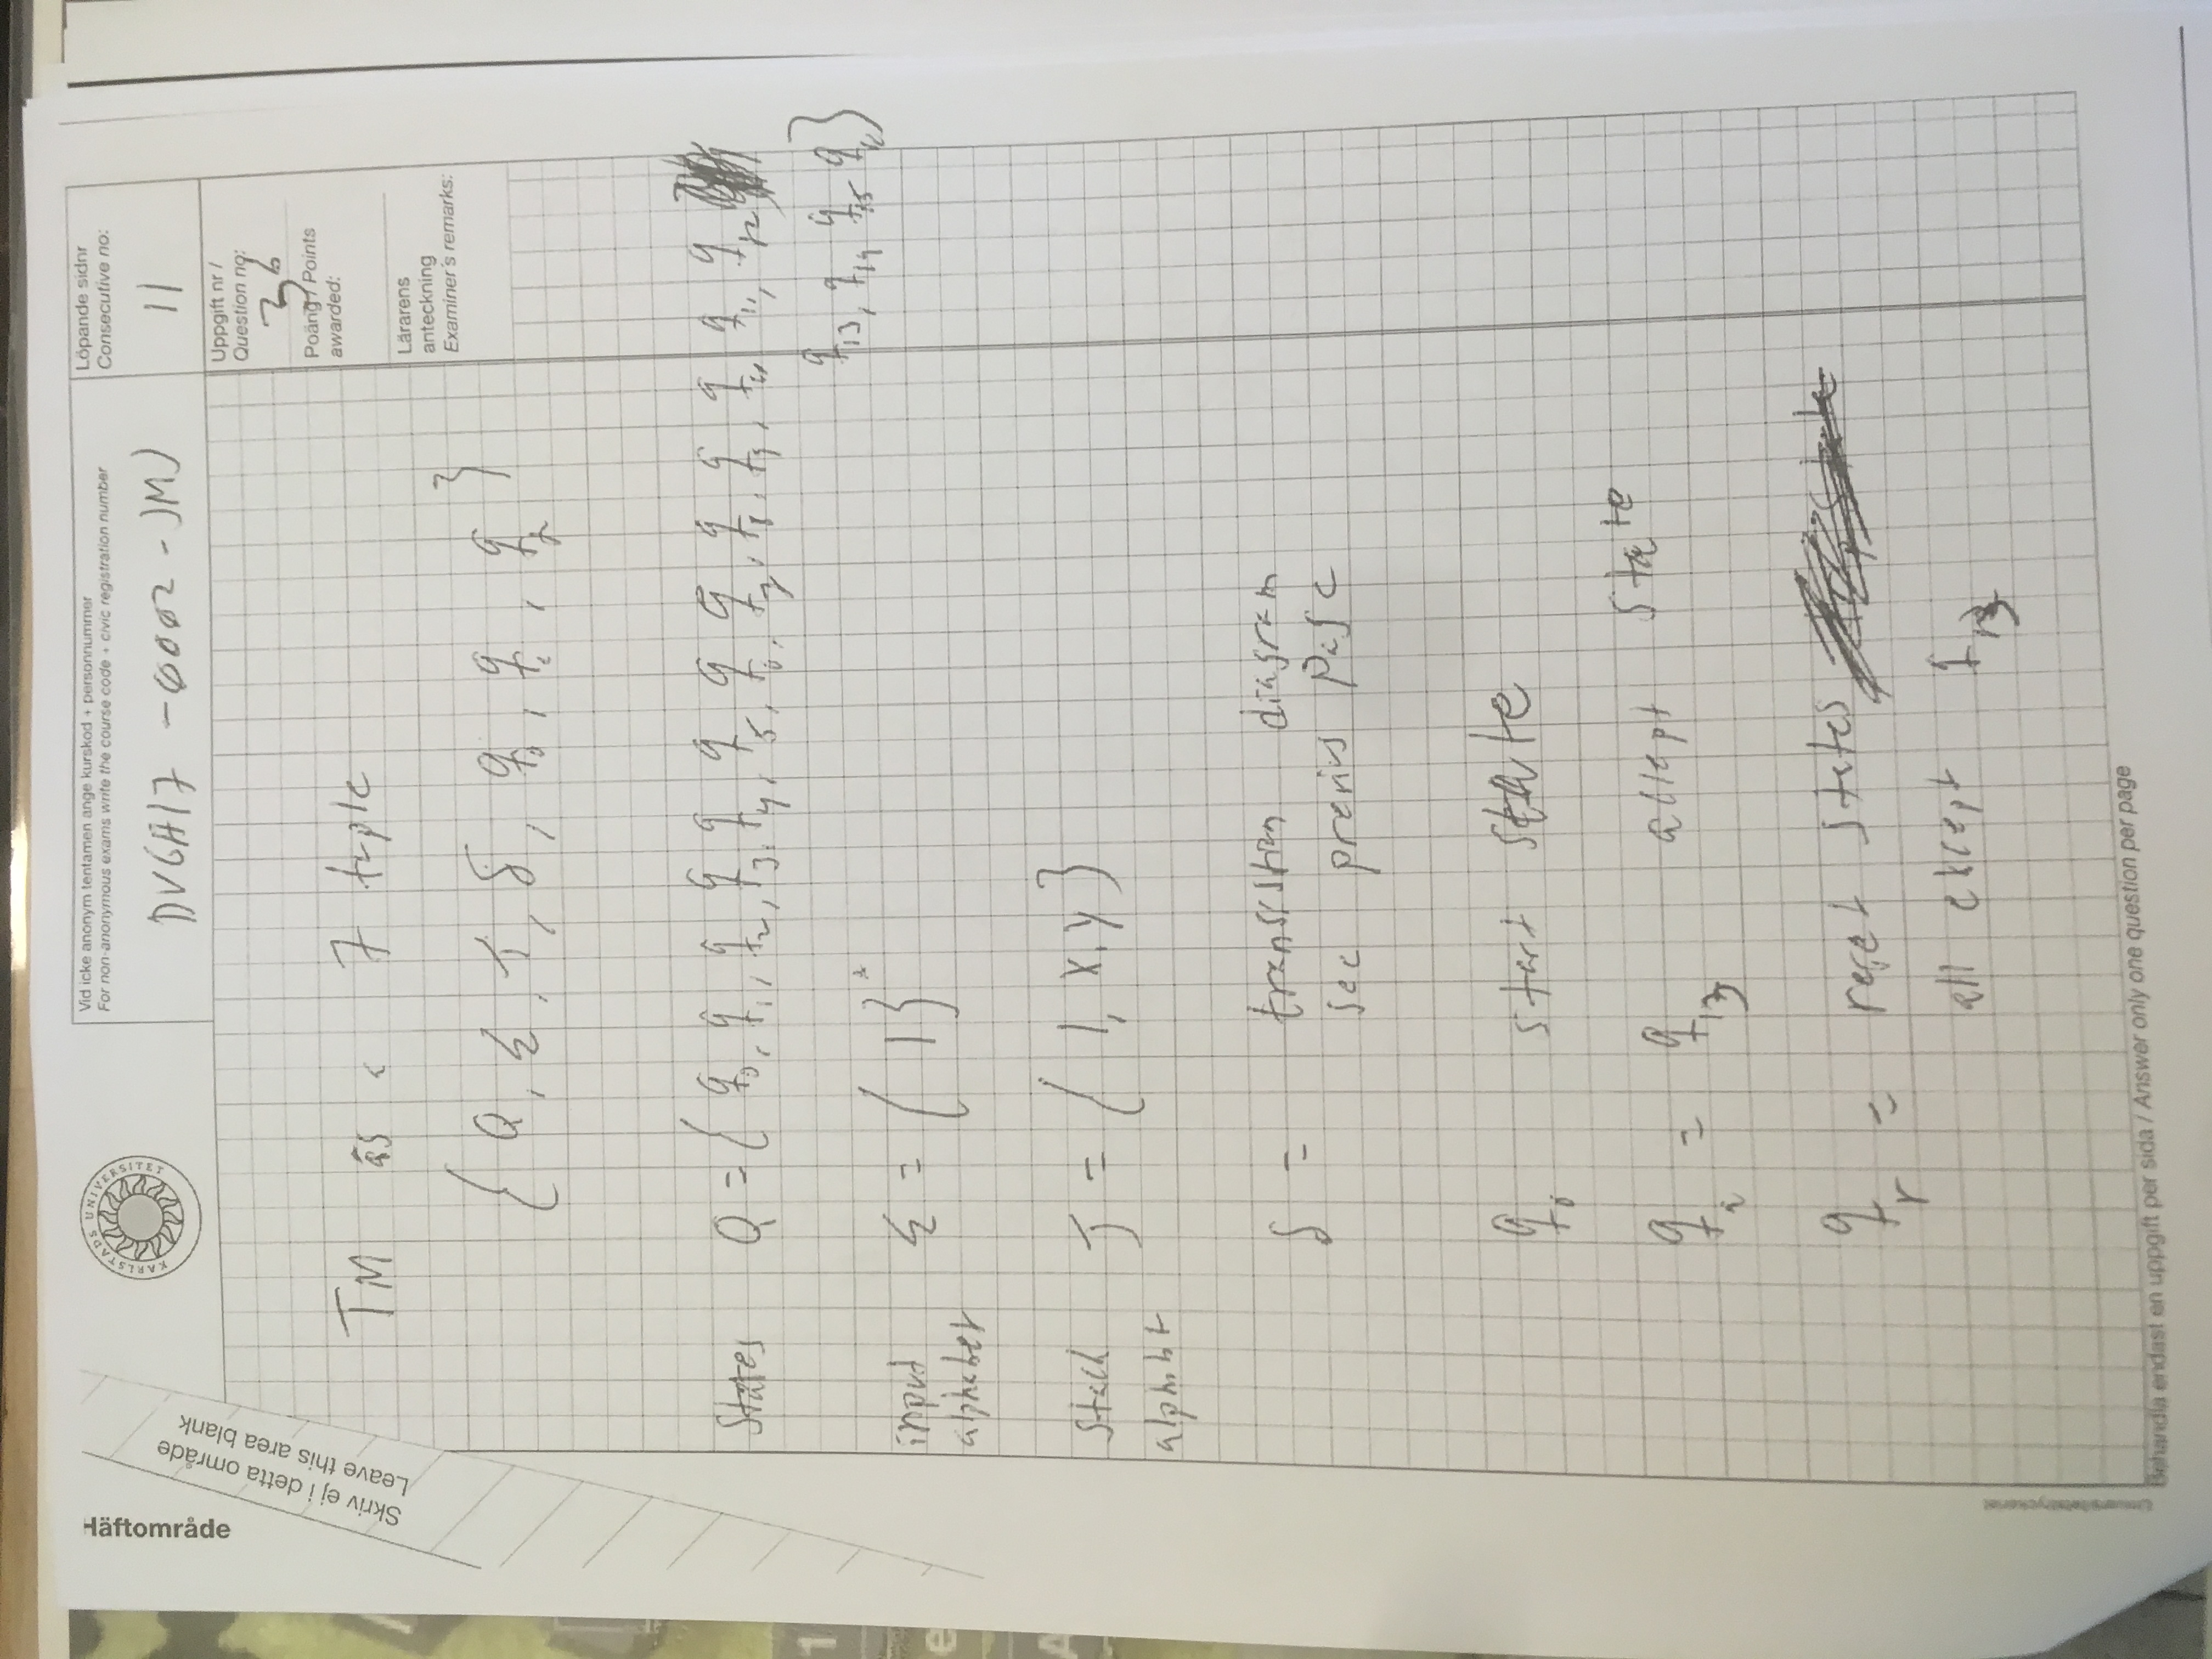 Häftområde
Skriv ej i detta område
Leave this area blank
KARLSTADS UNIVERSITET
Vid icke anonym tentamen ange kurskod + personnummer
For non-anonymous exams write the course code + civic registration number
DVGA17 -0002-JMJ
Löpande sidnr
Consecutive no:
11
Uppgift nr /
Question no:
3b
Poäng / Points
awarded:
Lärarens
anteckning
Examiner's remarks:
TM as a 7 tuple
{ Q, Σ, T, δ, q₀, qₐ, qᵣ }
States Q = { q₀, q₁, q₂, q₃, q₄, q₅, q₆, q₇, q₈, q₉, q₁₀, q₁₁, q₁₂
q₁₃, q₁₄ q₁₅ q₁₆ }
input Σ = { 1 }*
alphabet
Stack T = { 1, x, y }
alphabt
δ = transistion diagram
see previus page
q₀ start state
qₐ = q₁₃ accept state
qᵣ = reject states
all except q₁₃
Universitetstryckeriet
Behandla endast en uppgift per sida / Answer only one question per page